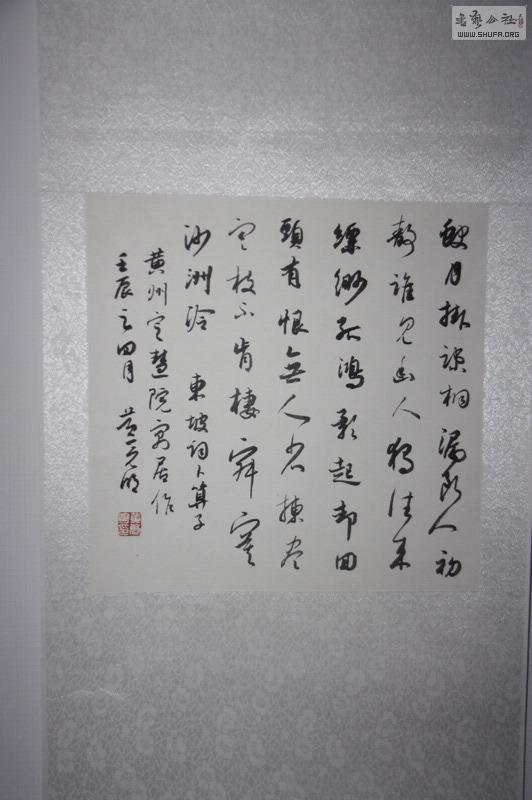 缺月掛疎桐漏断人初
静誰見幽人獨往来
縹緲孤鴻影起却回
頭有恨無人省揀尽
寒枝不肯棲寂寞
沙洲冷 東坡詞卜算子
黄州定慧院寓居作
壬辰之四月
书艺公社
WWW.SHUFA.ORG